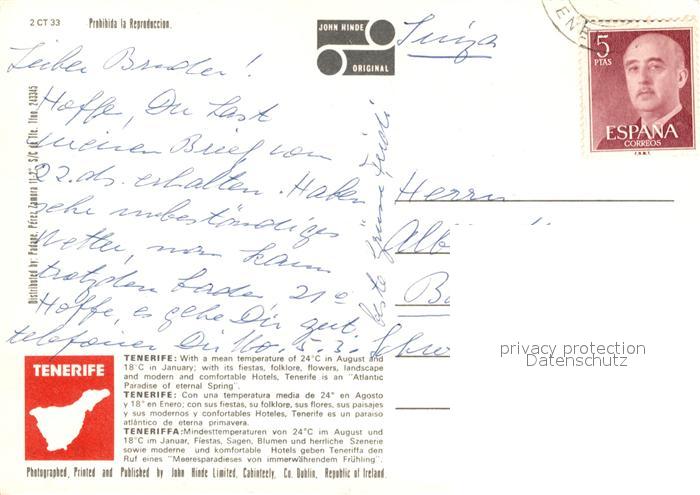 2 CT 33 Prohibida la Reproduccion.
JOHN HINDE
ORIGINAL
Suiza
TENE
5
PTAS
ESPAÑA
CORREOS
F.N.M.T.
Lieber Bruder!
Hoffe, Du hast
meinen Brief vom
22. ds. erhalten. Haben
sehr unbeständiges
Wetter, man kann
trotzdem baden 21°
Hoffe, es gehe Dir gut,
telefoniere Dir 5.3.
beste Grüsse
Herrn
Alb
Ba
Distributed by: Padane, Pérez Zamora S/C de Tfe. Tfno. 243345
privacy protection
Datenschutz
TENERIFE
TENERIFE: With a mean temperature of 24°C in August and
18°C in January; with its fiestas, folklore, flowers, landscape
and modern and comfortable Hotels, Tenerife is an "Atlantic
Paradise of eternal Spring".
TENERIFE: Con una temperatura media de 24° en Agosto
y 18° en Enero; con sus fiestas, su folklore, sus flores, sus paisajes
y sus modernos y confortables Hoteles, Tenerife es un paraiso
atlántico de eterna primavera.
TENERIFFA: Mindesttemperaturen von 24°C im August und
18°C im Januar, Fiestas, Sagen, Blumen und herrliche Szenerie
sowie moderne und komfortable Hotels geben Teneriffa den
Ruf eines "Meeresparadieses von immerwährendem Frühling".
Photographed, Printed and Published by John Hinde Limited, Cabinteely, Co. Dublin, Republic of Ireland.